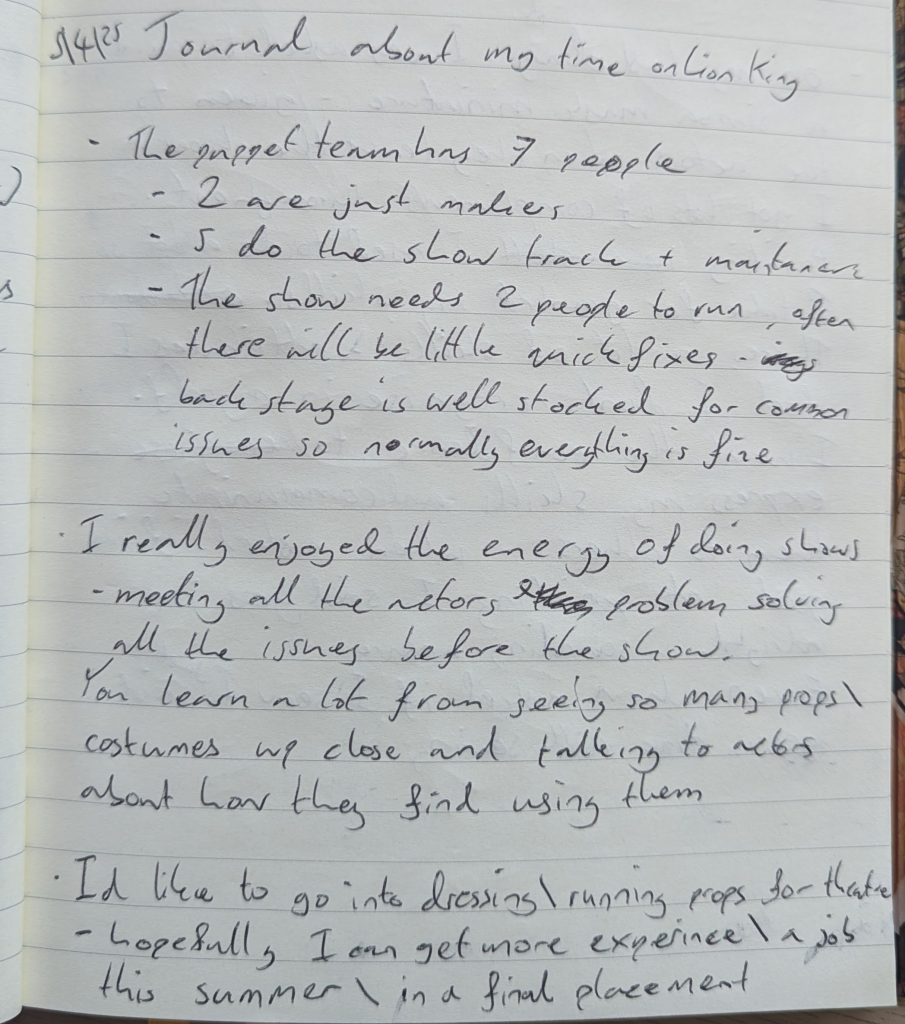 5\4\25 Journal about my time on Lion King
- The puppet team has 7 people
- 2 are just makers
- 5 do the show track + maintanance
- The show needs 2 people to run, often
there will be little quick fixes -
back stage is well stocked for common
issues so normally everything is fine
· I really enjoyed the energy of doing shows
- meeting all the actors problem solving
all the issues before the show.
You learn a lot from seeing so many props\
costumes up close and talking to actors
about how they find using them
· Id like to go into dressing\running props for theatre
- hopefully I can get more experince\a job
this summer\in a final placement